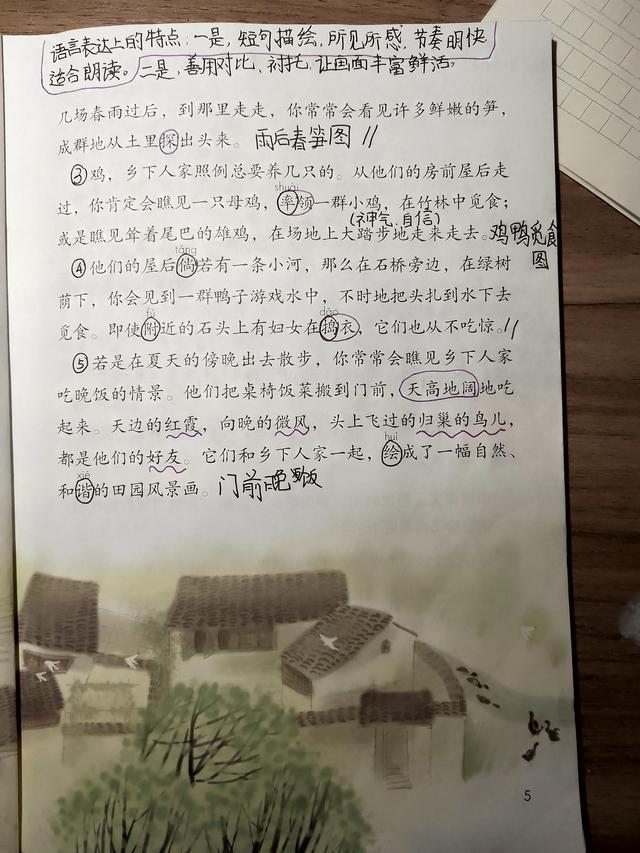 语言表达上的特点:一是,短句描绘,所见所感,节奏明快,
适合朗读。二是,善用对比、衬托,让画面丰富鲜活。
几场春雨过后,到那里走走,你常常会看见许多鲜嫩的笋,
成群地从土里探出头来。雨后春笋图 //
③鸡,乡下人家照例总要养几只的。从他们的房前屋后走
shuài
过,你肯定会瞧见一只母鸡,率领一群小鸡,在竹林中觅食;
(神气、自信)
或是瞧见耸着尾巴的雄鸡,在场地上大踏步地走来走去。鸡鸭觅食
图
tǎng
④他们的屋后倘若有一条小河,那么在石桥旁边,在绿树
荫下,你会见到一群鸭子游戏水中,不时地把头扎到水下去
fù dǎo
觅食。即使附近的石头上有妇女在捣衣,它们也从不吃惊。//
⑤若是在夏天的傍晚出去散步,你常常会瞧见乡下人家
吃晚饭的情景。他们把桌椅饭菜搬到门前,天高地阔地吃
起来。天边的红霞,向晚的微风,头上飞过的归巢的鸟儿,
huì
都是他们的好友。它们和乡下人家一起,绘成了一幅自然、
xié
和谐的田园风景画。门前晚饭
5